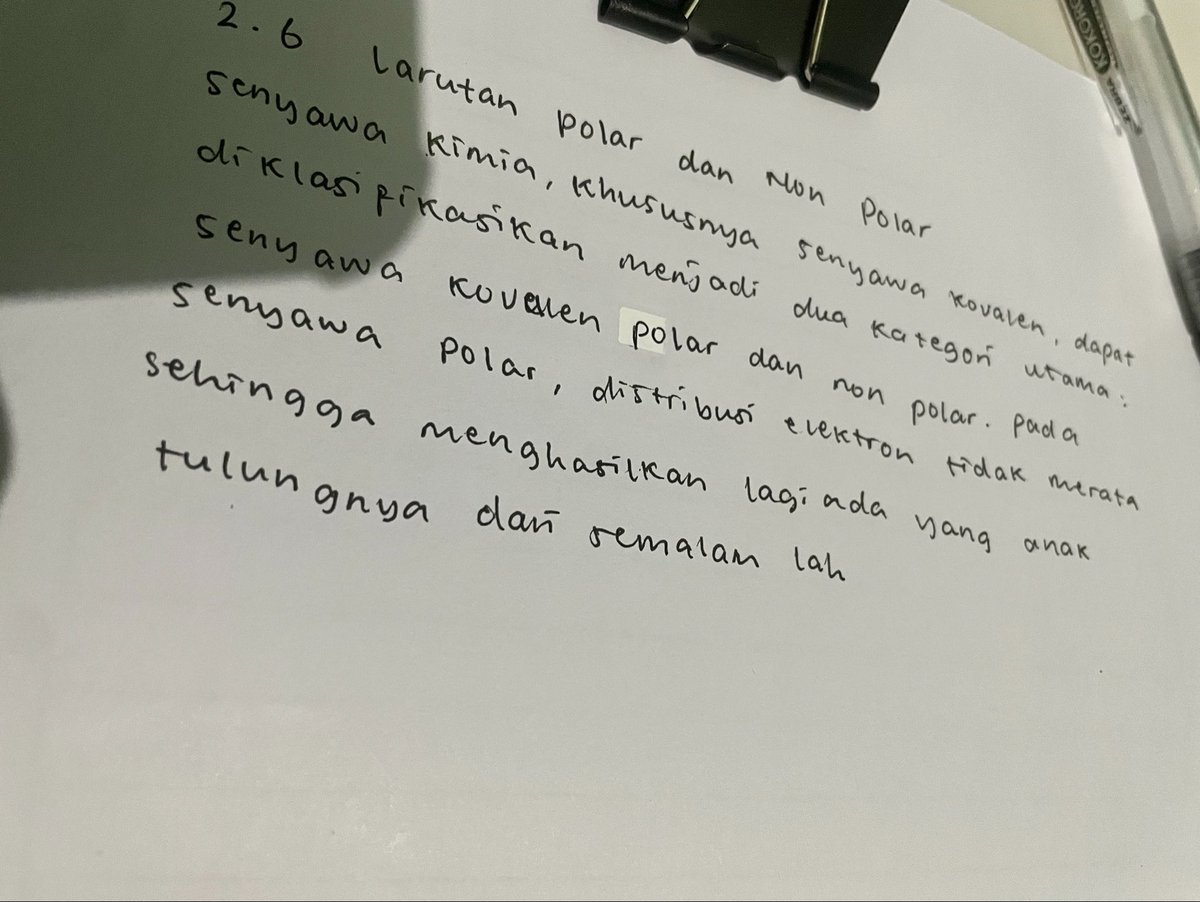 2.6 Larutan polar dan Non Polar
senyawa kimia, khususnya senyawa kovalen, dapat
diklasifikasikan menjadi dua kategori utama:
senyawa kovalen polar dan non polar. pada
senyawa polar, distribusi elektron tidak merata
sehingga menghasilkan lagi ada yang anak
tulungnya dari semalam lah
KOKORO
ZEBRA